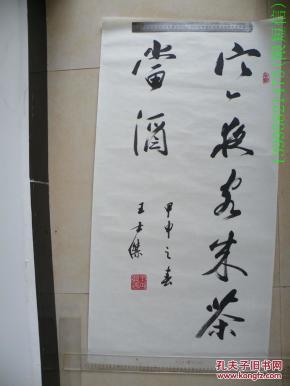 寒夜客来茶
當酒
甲申之春
王士傑
孔夫子旧书网